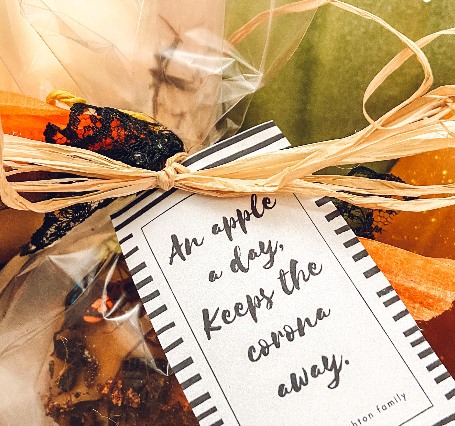 An apple
a day,
Keeps the
corona
away.
family